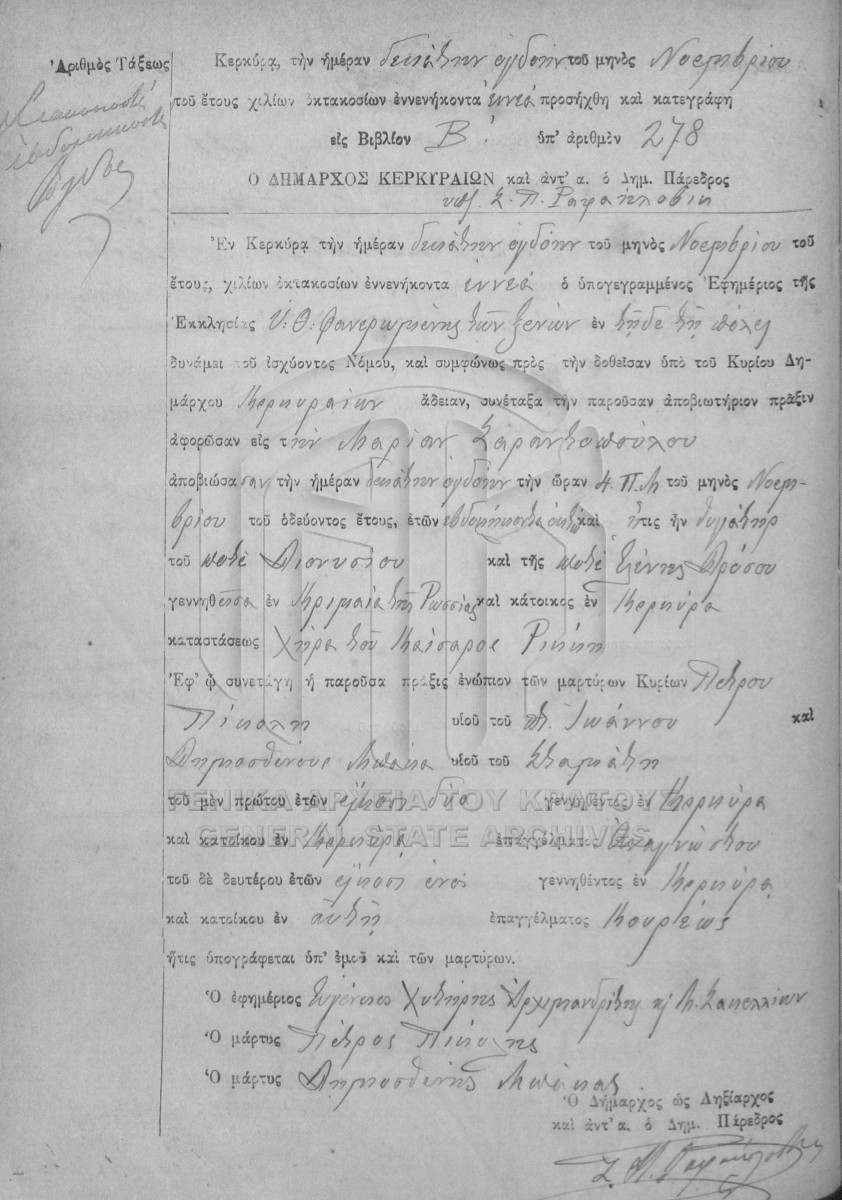 Ἀριθμὸς Τάξεως
Διακοσιοστὴ
ἑβδομηκοστὴ
ὀγδόη
Κερκύρᾳ, τὴν ἡμέραν δεκάτην ὀγδόην τοῦ μηνὸς Νοεμβρίου
τοῦ ἔτους χιλίων ὀκτακοσίων ἐννενήκοντα ἐννέα προσήχθη καὶ κατεγράφη
εἰς Βιβλίον Β΄. ὑπ' ἀριθμὸν 278
Ὁ ΔΗΜΑΡΧΟΣ ΚΕΡΚΥΡΑΙΩΝ καὶ ἀντ' α. ὁ Δημ. Πάρεδρος
Σ. Π. Ραφαήλοβικ
Ἐν Κερκύρᾳ τὴν ἡμέραν δεκάτην ὀγδόην τοῦ μηνὸς Νοεμβρίου τοῦ
ἔτους, χιλίων ὀκτακοσίων ἐννενήκοντα ἐννέα ὁ ὑπογεγραμμένος Ἐφημέριος τῆς
Ἐκκλησίας Ὑ. Θ. Φανερωμένης τῶν ξένων ἐν τῇδε τῇ πόλει
δυνάμει τοῦ ἰσχύοντος Νόμου, καὶ συμφώνως πρὸς τὴν δοθεῖσαν ὑπὸ τοῦ Κυρίου Δη-
μάρχου Κερκυραίων ἄδειαν, συνέταξα τὴν παροῦσαν ἀποβιωτήριον πρᾶξιν
ἀφορῶσαν εἰς τὴν Μαρίαν Σαραντοπούλου
ἀποβιώσασαν τὴν ἡμέραν δεκάτην ὀγδόην τὴν ὥραν 4. Π.Μ τοῦ μηνὸς Νοεμ-
βρίου τοῦ ὁδεύοντος ἔτους, ἐτῶν ἑβδομήκοντα ὀκτὼ καὶ ἥτις ἦν θυγάτηρ
τοῦ ποτὲ Διονυσίου καὶ τῆς ποτὲ Δρόσου
γεννηθεῖσα ἐν Κριμαίᾳ τῆς Ρωσσίας καὶ κάτοικος ἐν Κερκύρᾳ
καταστάσεως Χήρα τοῦ Καίσαρος Ρίκκη
Ἐφ' ᾧ συνετάγη ἡ παροῦσα πρᾶξις ἐνώπιον τῶν μαρτύρων Κυρίων Πέτρου
Πίκολη υἱοῦ τοῦ πτ. Ἰωάννου καὶ
Δημοσθένους Μπάκα υἱοῦ τοῦ Σταμάτη
τοῦ μὲν πρώτου ἐτῶν εἴκοσι δύο γεννηθέντος ἐν Κερκύρᾳ
καὶ κατοίκου ἐν Κερκύρᾳ ἐπαγγέλματος Ἀναγνώστου
τοῦ δὲ δευτέρου ἐτῶν εἴκοσι ἑνὸς γεννηθέντος ἐν Κερκύρᾳ
καὶ κατοίκου ἐν αὐτῇ ἐπαγγέλματος Κουρέως
ἥτις ὑπογράφεται ὑπ' ἐμοῦ καὶ τῶν μαρτύρων.
Ὁ ἐφημέριος Εὐγένιος Χυτήρης Ἀρχιμανδρίτης κ Μ. Σακελλίων
Ὁ μάρτυς Πέτρος Πίκολης
Ὁ μάρτυς Δημοσθένης Μπάκας
Ὁ Δήμαρχος ὡς Ληξίαρχος
καὶ ἀντ' α. ὁ Δημ. Πάρεδρος
ΓΕΝΙΚΑ ΑΡΧΕΙΑ ΤΟΥ ΚΡΑΤΟΥΣ
GENERAL STATE ARCHIVES